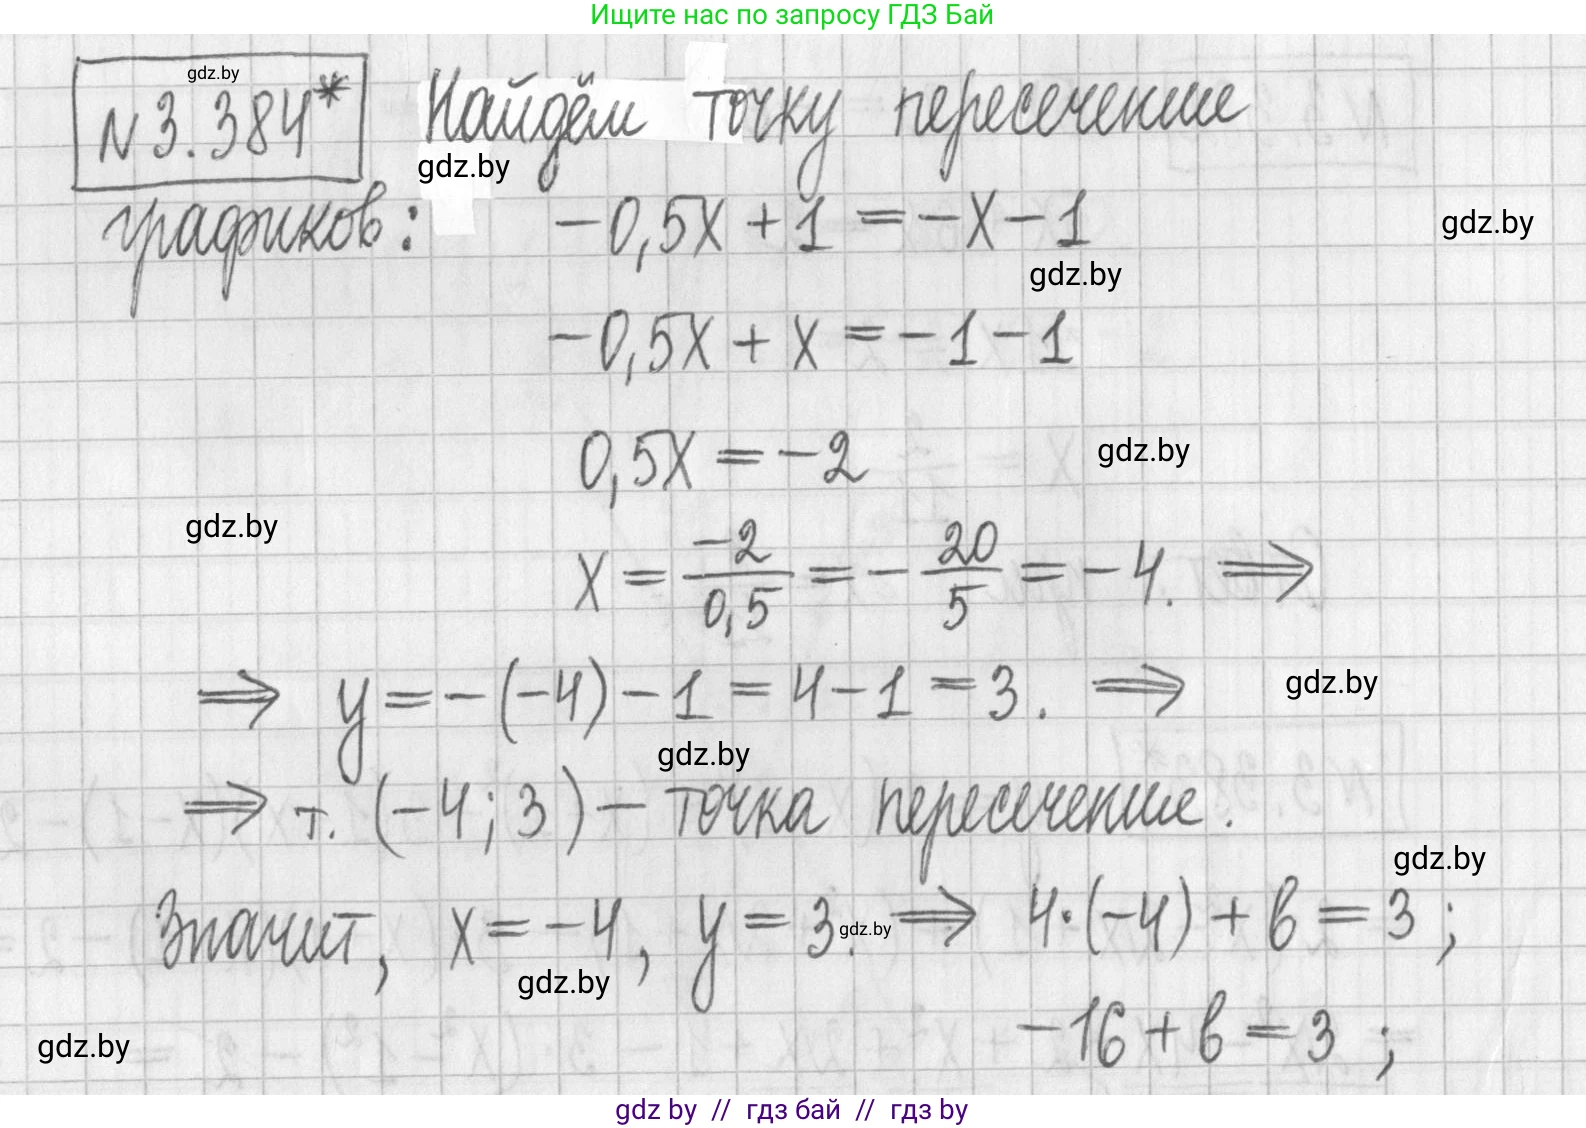 Ищите нас по запросу ГДЗ Бай
gdz.by
N3.384* Найдём точку пересечение
gdz.by
графиков: -0,5x + 1 = -x - 1
gdz.by
gdz.by
-0,5x + x = -1 - 1
0,5x = -2
gdz.by
gdz.by
x = -2/0,5 = -20/5 = -4. ⟹
⟹ y = -(-4) - 1 = 4 - 1 = 3. ⟹
gdz.by
gdz.by
⟹ т. (-4; 3) - точка пересечение.
gdz.by
Значит, x = -4, y = 3. ⟹ 4·(-4) + в = 3;
gdz.by
gdz.by
-16 + в = 3;
gdz.by
gdz by // гдз бай // гдз by